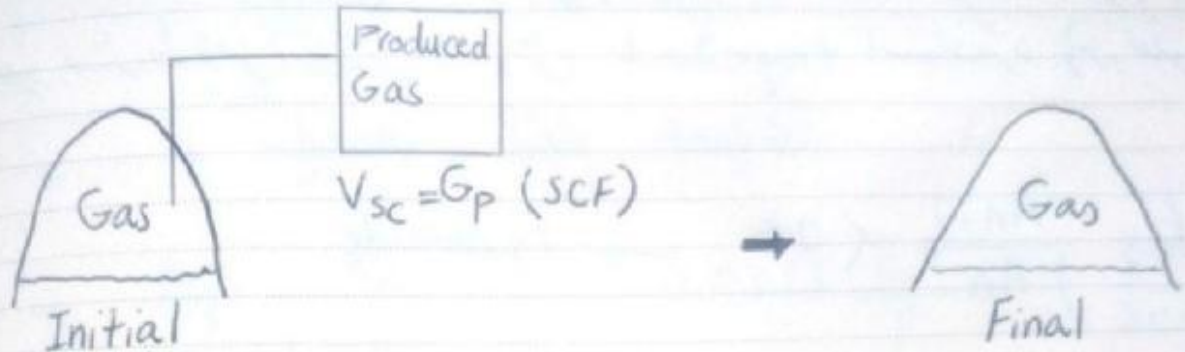 Produced
Gas
Gas
V_SC = G_P (SCF)
Gas
Initial
Final